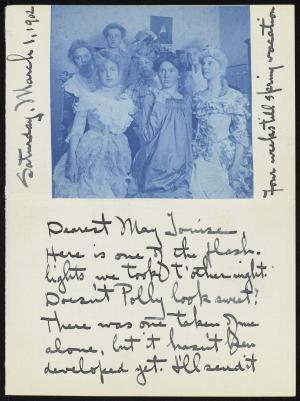 Saturday, March 1, 1902
Four weeks till spring vacation
Dearest May Louise,
Here is one of the flash-
lights we took t'other night.
Doesn't Polly look sweet?
There was one taken of me
alone, but it hasn't been
developed yet. I'll send it